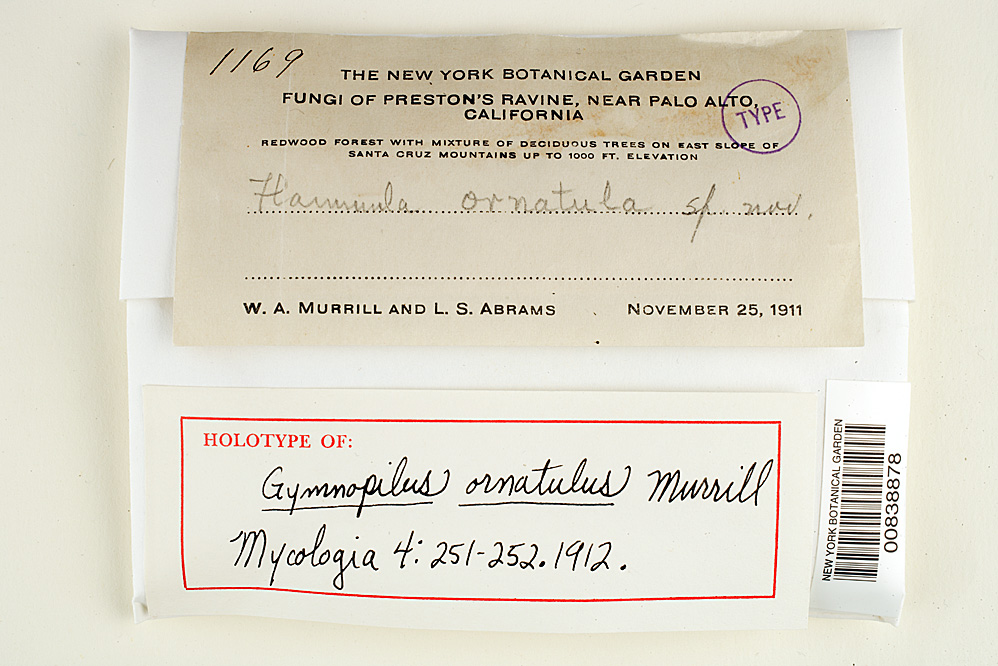 1169
THE NEW YORK BOTANICAL GARDEN
FUNGI OF PRESTON'S RAVINE, NEAR PALO ALTO,
CALIFORNIA
TYPE
REDWOOD FOREST WITH MIXTURE OF DECIDUOUS TREES ON EAST SLOPE OF
SANTA CRUZ MOUNTAINS UP TO 1000 FT. ELEVATION
Flammula ornatula sp. nov.
W. A. MURRILL AND L. S. ABRAMS NOVEMBER 25, 1911
HOLOTYPE OF:
Gymnopilus ornatulus Murrill
Mycologia 4: 251-252. 1912.
NEW YORK BOTANICAL GARDEN
00838878